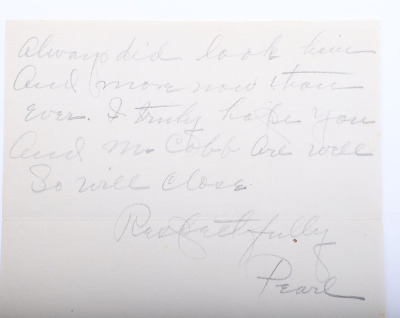 Always did look him
And more now than
ever. I truly hope you
And Mr Cobb are well
So will close
Respectfully
Pearl